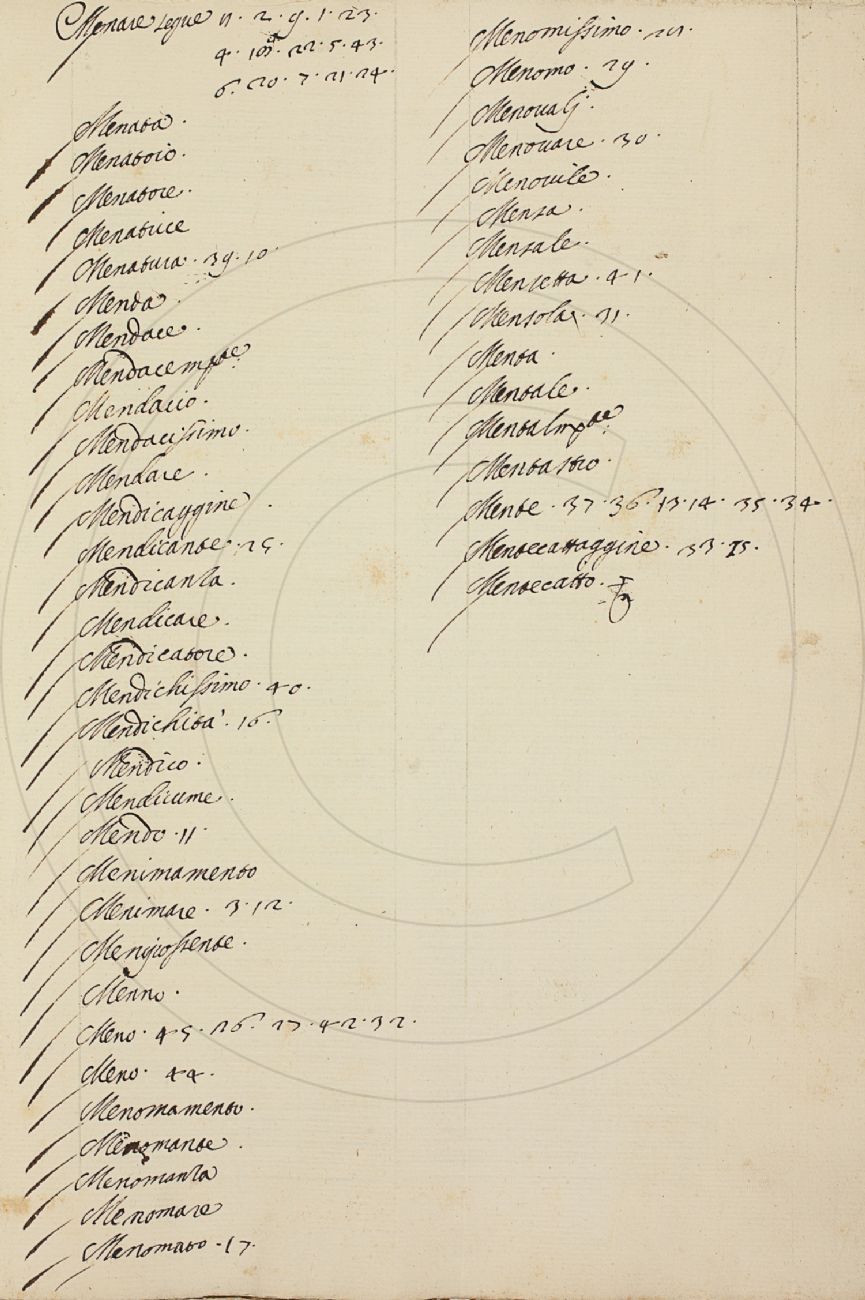 Menare segue 11. 2. 9. 1. 23.
4. 22. 5. 43.
6. 20. 7. 21. 24.
Menata.
Menatoio.
Menatore.
Menatrice
Menatura. 39. 10.
Menda.
Mendace.
Mendacemte.
Mendacio.
Mendacissimo.
Mendare.
Mendicaggine.
Mendicante. 25.
Mendicanza.
Mendicare.
Mendicatore.
Mendichissimo. 40.
Mendichità. 16.
Mendico.
Mendicume.
Mendo. 11.
Menimamento
Menimare. 3. 12.
Menipossente.
Menno.
Meno. 45. 26. 27. 42. 32.
Meno. 44.
Menomamento.
Menomante.
Menomanza
Menomare
Menomato. 17.
Menomissimo.
Menomo. 29.
Menovare. 30.
Menovile.
Mensa.
Mensale.
Mensetta. 41.
Mensola. 31.
Menta.
Mentale.
Mentalmte.
Mentastro.
Mente. 37. 36. 13. 14. 35. 34.
Mentecattaggine. 33.
Mentecatto.